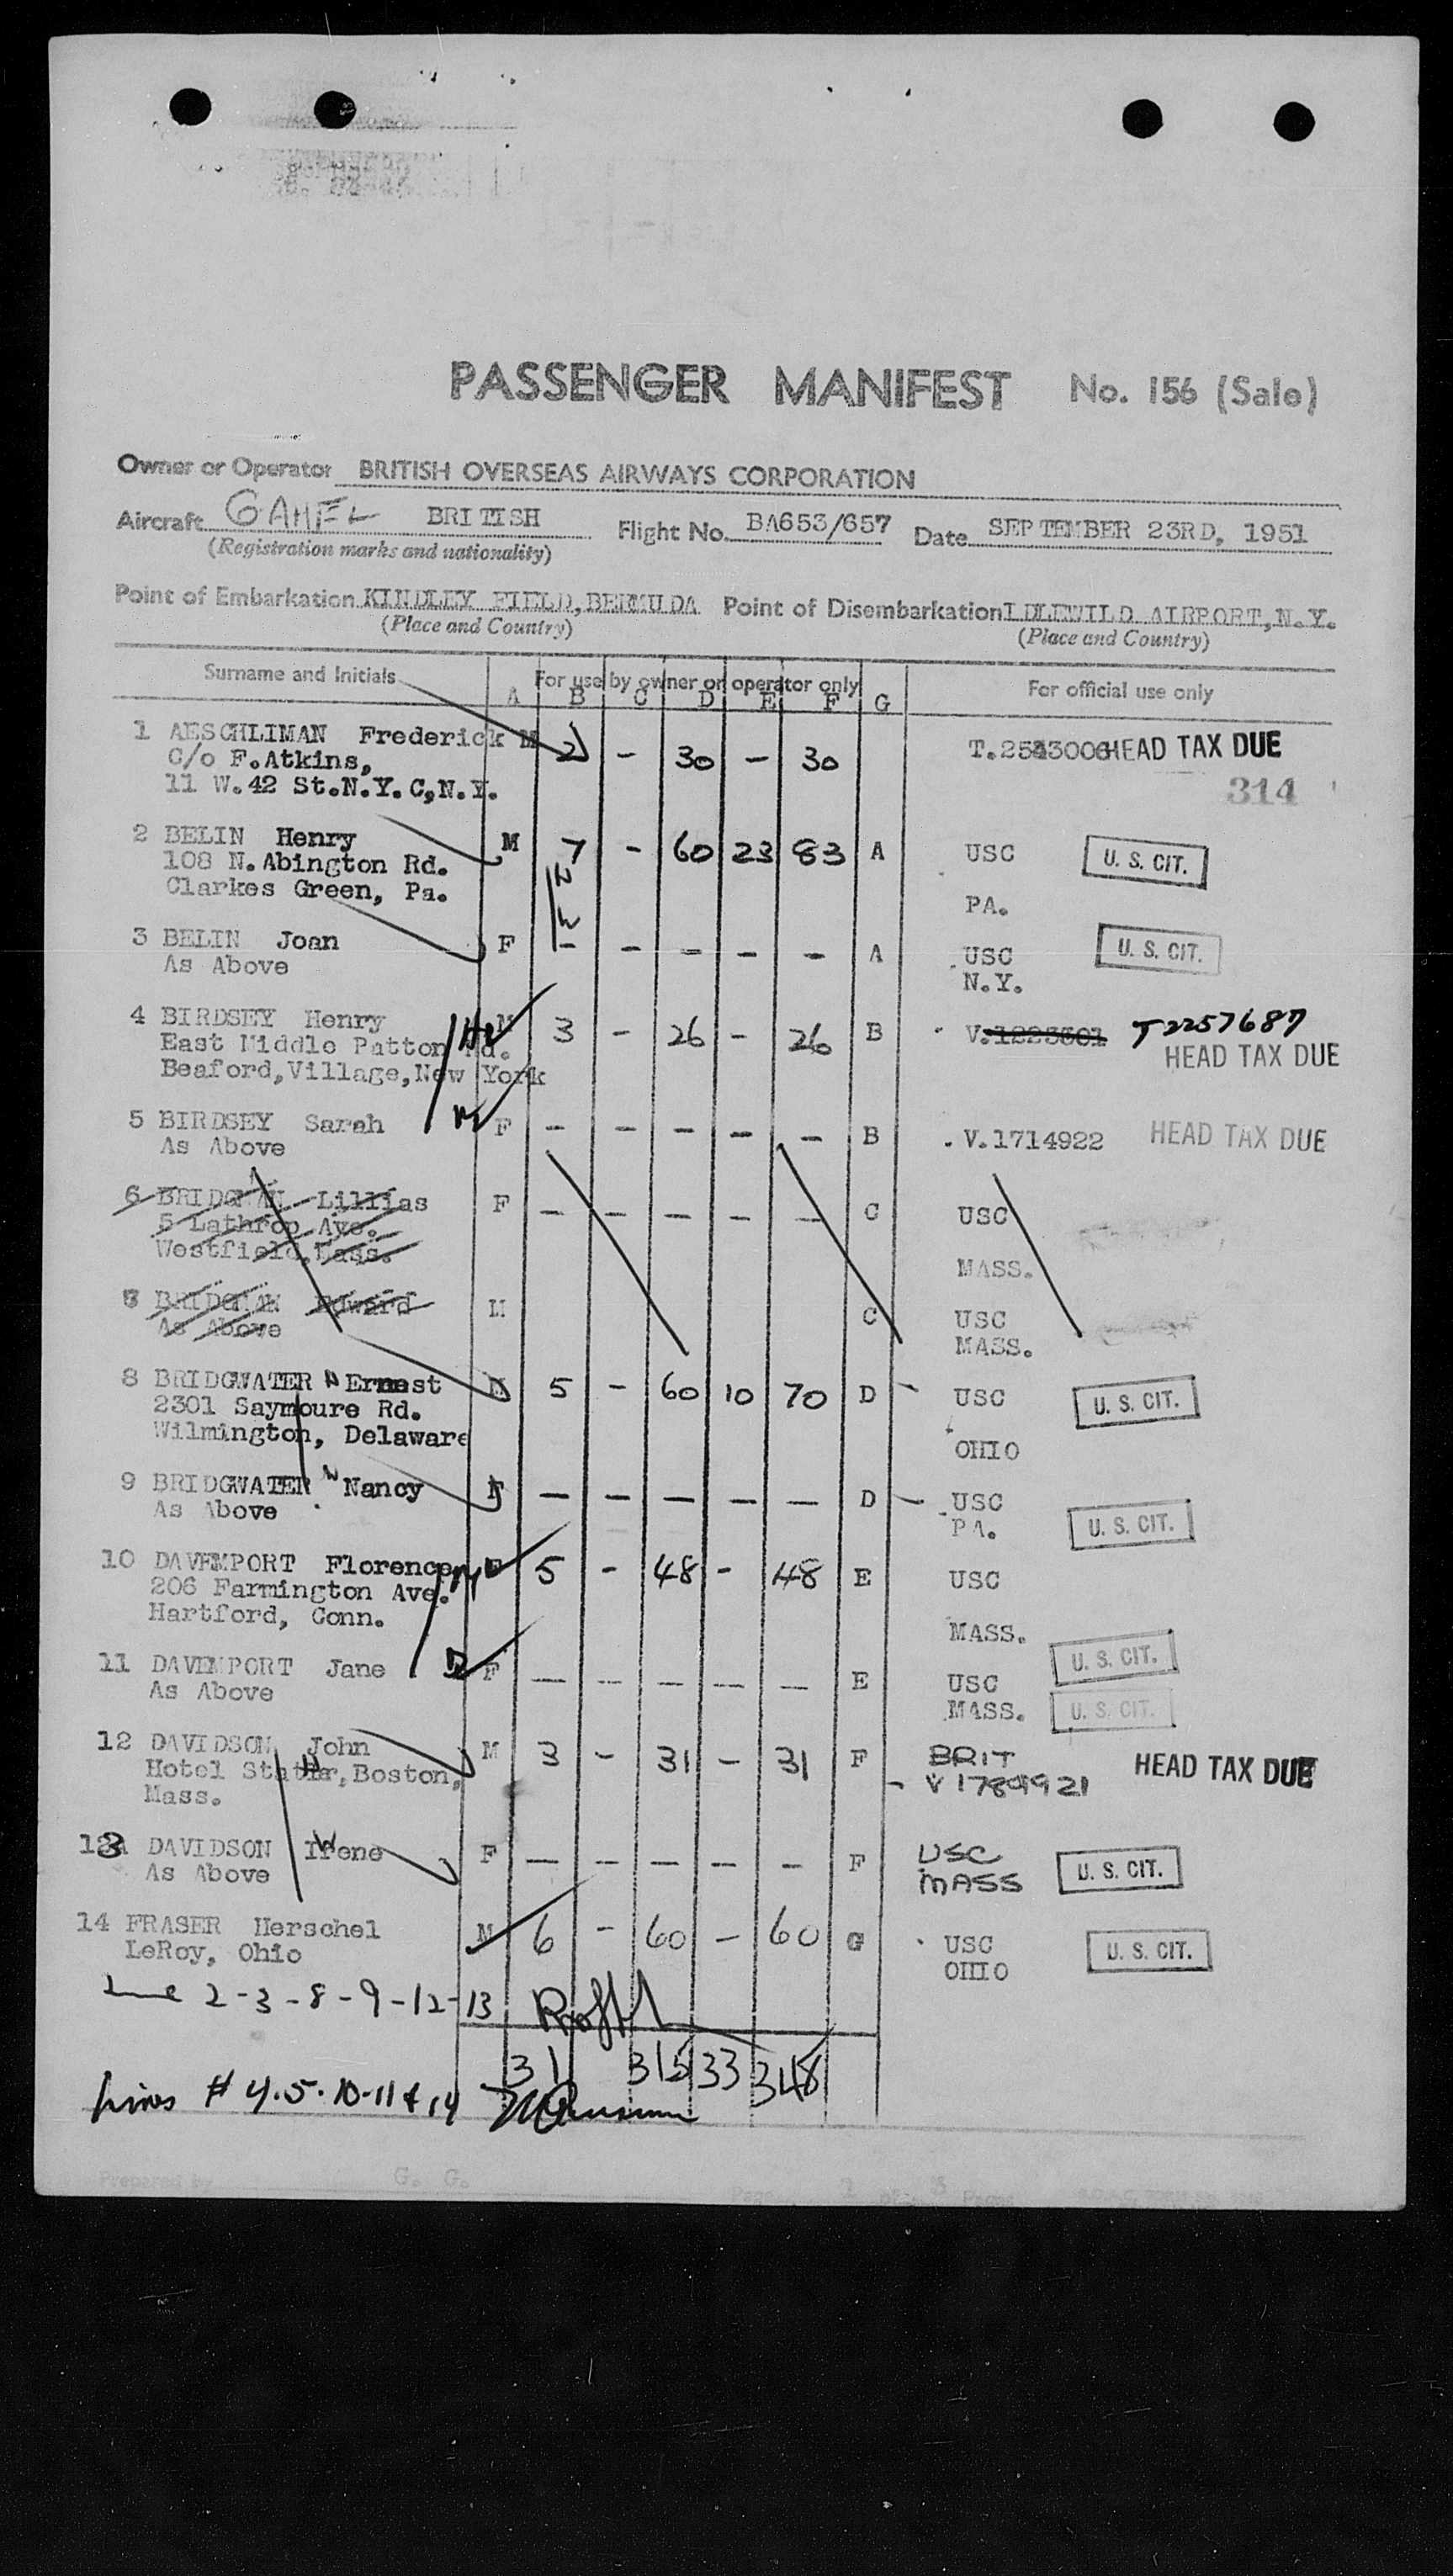 PASSENGER MANIFEST No. 156 (Sale)
Owner or Operator BRITISH OVERSEAS AIRWAYS CORPORATION
Aircraft GAHEL BRITISH Flight No. BA653/657 Date SEPTEMBER 23RD, 1951
(Registration marks and nationality)
Point of Embarkation KINDLEY FIELD, BERMUDA Point of Disembarkation IDLEWILD AIRPORT, N.Y.
(Place and Country) (Place and Country)
Surname and Initials For use by owner or operator only For official use only
A B C D E F G
1 AESCHLIMAN Frederick M 2 - 30 - 30 HEAD TAX DUE
C/o F. Atkins,
11 W. 42 St. N.Y. C, N.Y. 314
2 BELIN Henry M 7 - 60 23 83 A USC U. S. CIT.
108 N. Abington Rd.
Clarkes Green, Pa. PA.
3 BELIN Joan F - - - - - A USC U. S. CIT.
As Above N.Y.
4 BIRDSEY Henry M 3 - 26 - 26 B V. 1223501 T2257687
East Middle Patton Rd. HEAD TAX DUE
Beaford, Village, New York
5 BIRDSEY Sarah F - - - - - B V. 1714922 HEAD TAX DUE
As Above
6 BRIDGMAN Lillias F - - - - - C USC
5 Lathrop Ave.
Westfield, Mass. MASS.
7 BRIDGMAN Edward M C USC
As Above MASS.
8 BRIDGWATER Ernest M 5 - 60 10 70 D - USC U. S. CIT.
2301 Saymoure Rd.
Wilmington, Delaware OHIO
9 BRIDGWATER Nancy F - - - - - D - USC
As Above PA. U. S. CIT.
10 DAVENPORT Florence F 5 - 48 - 48 E USC
206 Farmington Ave.
Hartford, Conn. MASS. U. S. CIT.
11 DAVENPORT Jane F - - - - - E USC
As Above MASS. U. S. CIT.
12 DAVIDSON John M 3 - 31 - 31 F BRIT HEAD TAX DUE
Hotel Statler, Boston, V 1789921
Mass.
13 DAVIDSON Irene F - - - - - F USC U. S. CIT.
As Above MASS
14 FRASER Herschel M 6 - 60 - 60 G USC U. S. CIT.
LeRoy, Ohio OHIO
Line 2-3-8-9-12-13
31 315 33 348
Lines # 4.5.10-11 & 14
Prepared by G. G. Page 1 of 3 Pages